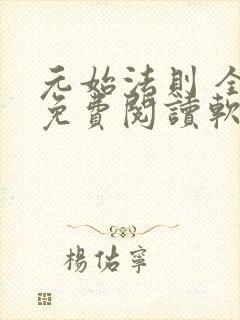 元始法則 全
免費閱讀軟
楊佑寧